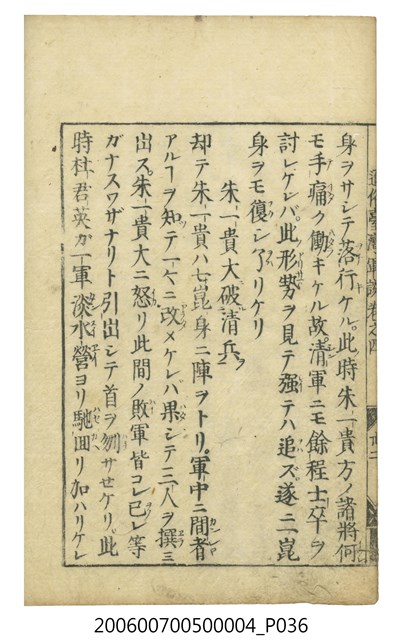 通俗臺灣軍談卷之四
身ヲサシテ落行ケル。此時朱一貴方ノ諸將何
モ手痛ク働キケル故。清軍ニモ餘程士卒ヲ
討レケレバ。此形勢ヲ見テ强テハ追ズ遂ニ二崑
身ヲモ復シ了リケリ
朱一貴大破清兵ヲ
却テ朱一貴ハ七崑身ニ陣ヲトリ。軍中ニ間者
アルヿヲ知テ一々ニ改メケレハ果シテ三人ヲ撰ミ
出ス。朱一貴大ニ怒リ此間ノ敗軍皆コレ已レ等
ガナスワザナリト引出シテ首ヲ刎サセケリ。此
時杜君英カ一軍淡水營ヨリ馳回リ加ハリケレ
200600700500004_P036